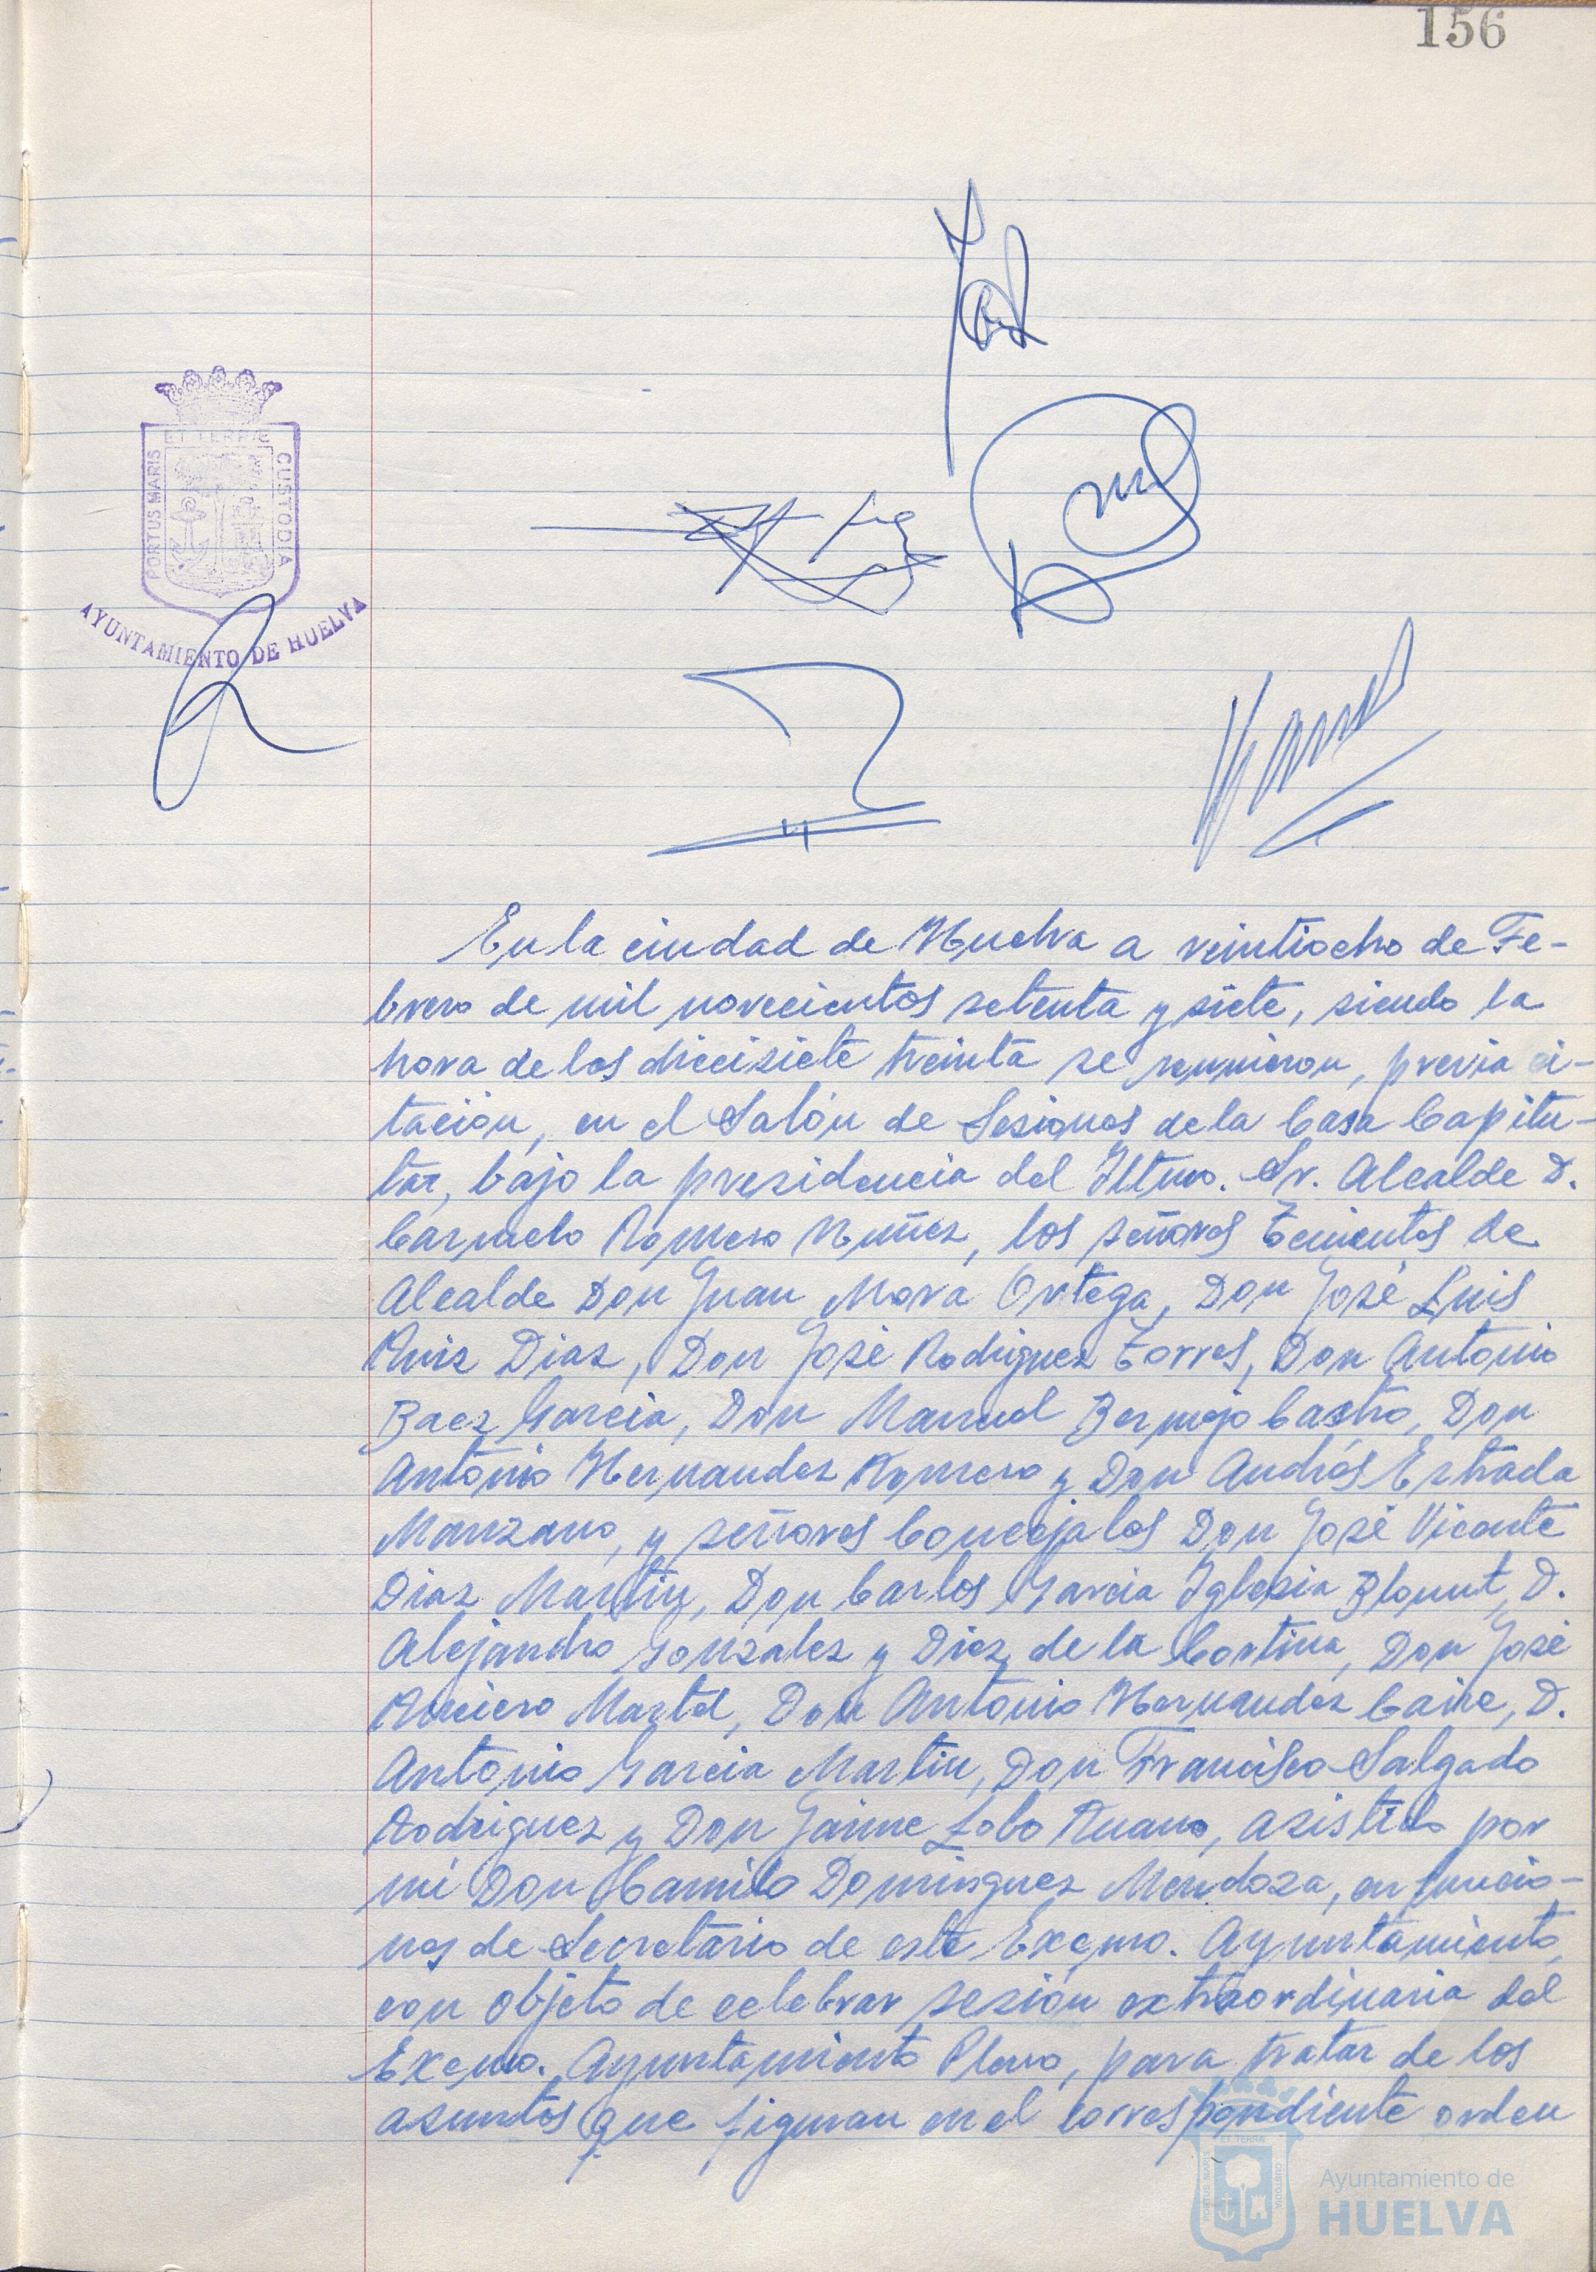 156
ET TERRÆ
PORTUS MARIS
CUSTODIA
AYUNTAMIENTO DE HUELVA
En la ciudad de Huelva a veintiocho de Fe-
brero de mil novecientos setenta y siete, siendo la
hora de las diecisiete treinta se reunieron, previa ci-
tación, en el Salón de Sesiones de la Casa Capitu-
lar, bajo la presidencia del Iltmo. Sr. Alcalde D.
Carmelo Romero Nuñez, los señores Tenientes de
Alcalde Don Juan Mora Ortega, Don José Luis
Ruiz Diaz, Don José Rodriguez Torres, Don Antonio
Baez Garcia, Don Manuel Bermejo Castro, Don
Antonio Hernandez Romero y Don Andrés Estrada
Manzano, y señores Concejales Don José Vicente
Diaz Martin, Don Carlos Garcia Iglesia Blount, D.
Alejandro Gonzalez y Diez de la Cortina, Don José
Martel, Don Antonio Hernandez D.
Antonio Garcia Martin, Don Francisco Salgado
Rodriguez y Don Jaime Lobo Ruano, asistido por
mi Don Camilo Dominguez Mendoza, en funcio-
nes de Secretario de este Excmo. Ayuntamiento,
con objeto de celebrar sesión extraordinaria del
Excmo. Ayuntamiento Pleno, para tratar de los
asuntos que figuran en el correspondiente orden
Ayuntamiento de
HUELVA